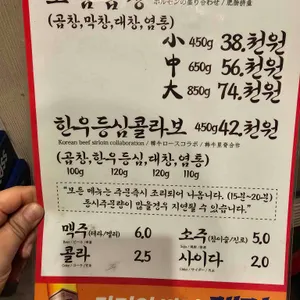 ホルモンの盛り合わせ / 肥肠拼盘
(곱창,막창,대창,염통)
小 450g 38.천원
中 650g 56.천원
大 850g 74.천원
한우등심콜라보 450g 42.천원
Korean beef sirloin collaboration / 韓牛ロースコラボ / 韩牛里脊合作
(곱창,한우등심,대창,염통)
100g 120g 120g 110g
"모든 메뉴는 주문즉시 조리되어 나옵니다. (15분~20분)
동시주문량이 많을경우 지연될 수 있습니다."
맥주 (테라/켈리) 6.0
소주 (참이슬/진로) 5.0
콜라 2.5
사이다 2.0